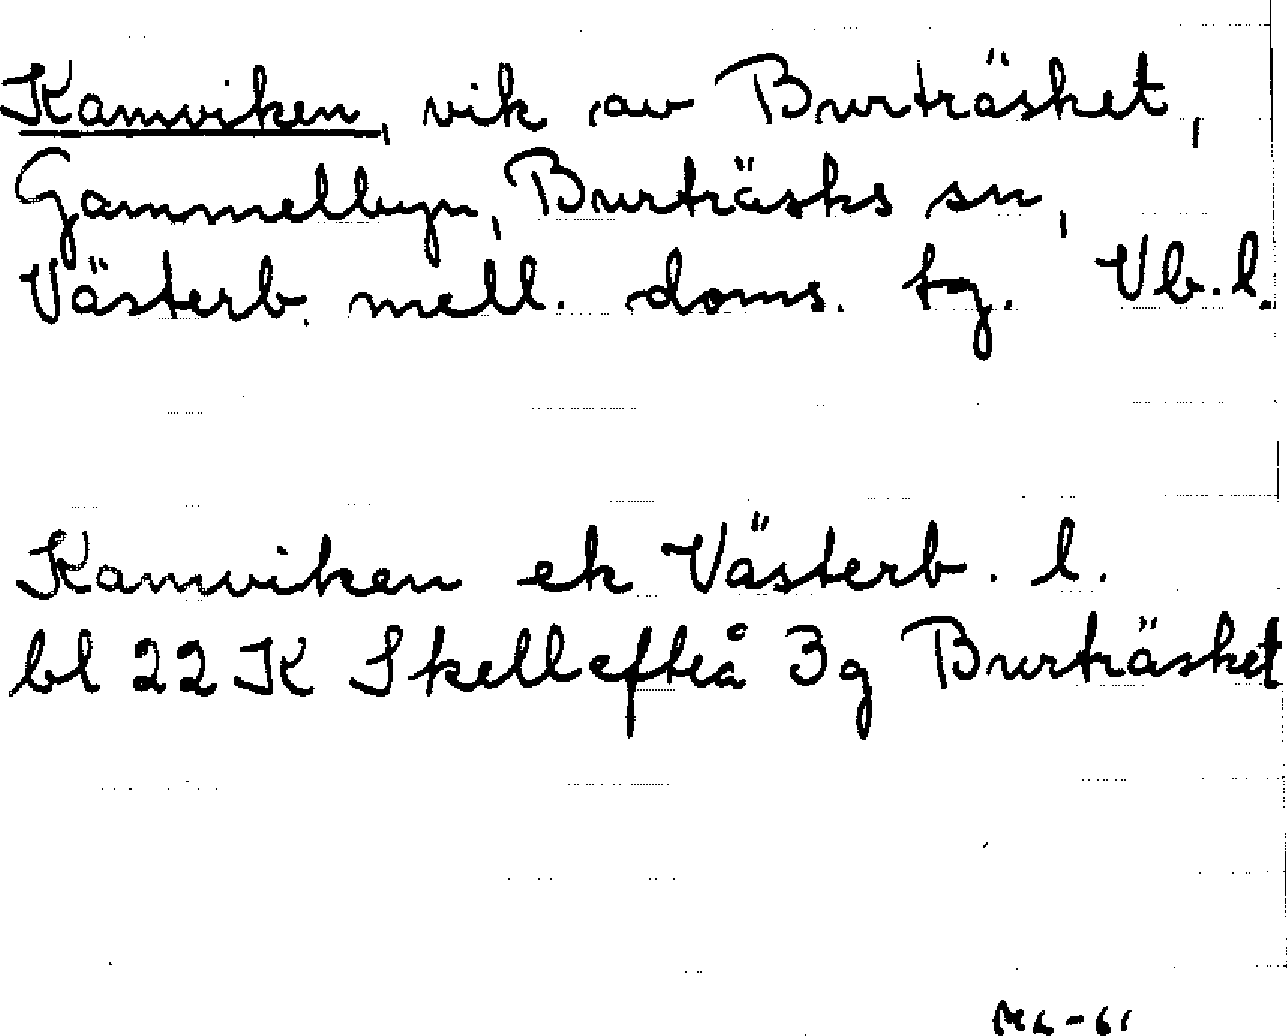 Kamviken, vik av Burträsket,
Gammelbyn, Burträsks sn,
Västerb. mell. doms. tg. Vb.l.
Kamviken ek Västerb. l.
bl 22K Skellefteå 3g Burträsket